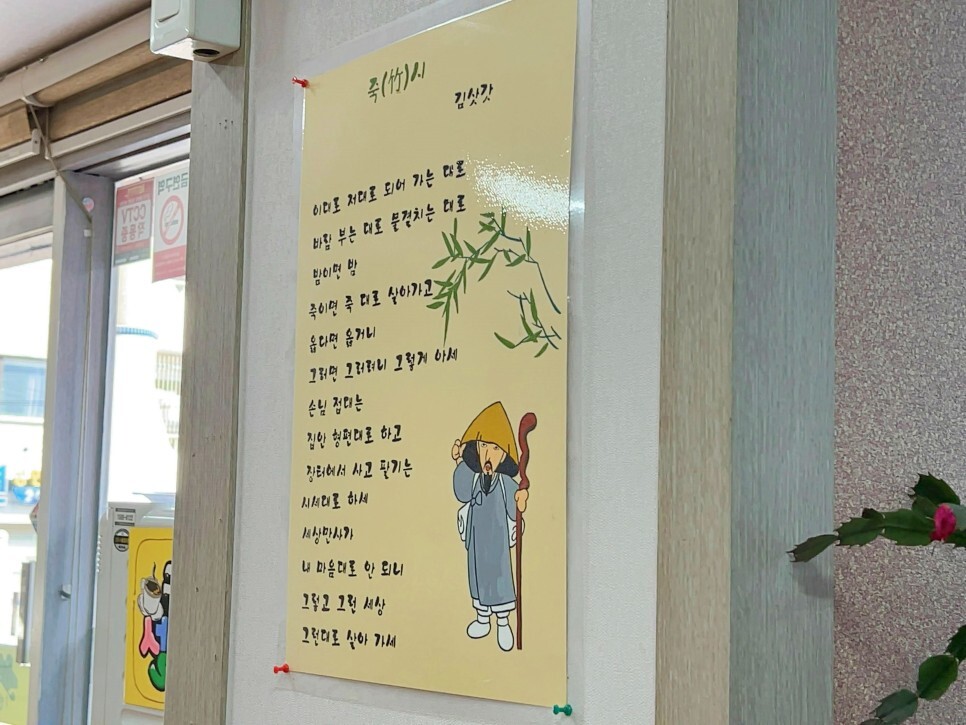 죽(竹)시
김삿갓
이대로 저대로 되어 가는 대로
바람 부는 대로 물결치는 대로
밥이면 밥
죽이면 죽 대로 살아가고
옳다면 옳거니
그러면 그러려니 그렇게 아세
손님 접대는
집안 형편대로 하고
장터에서 사고 팔기는
시세대로 하세
세상만사가
내 마음대로 안 되니
그렇고 그런 세상
그런대로 살아 가세
금연구역
CCTV
작동중